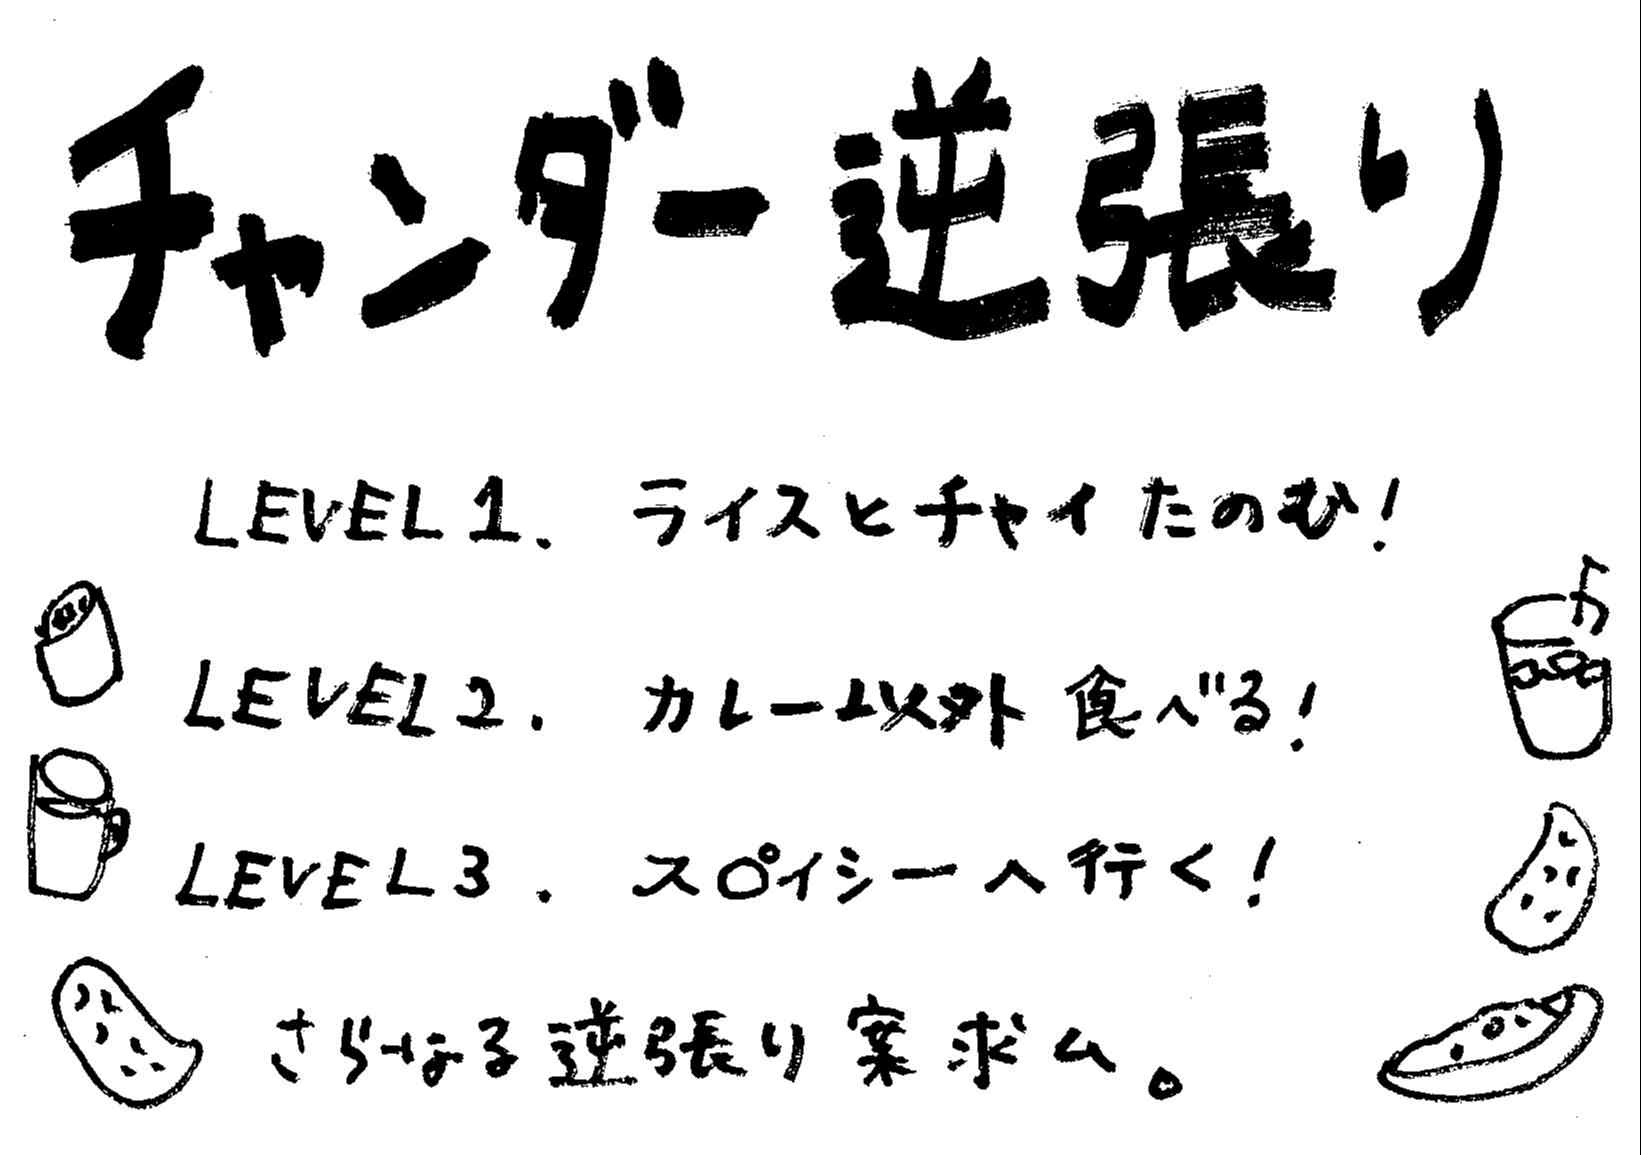 チャンダー逆張り
LEVEL 1. ライスとチャイたのむ!
LEVEL 2. カレー以外食べる!
LEVEL 3. スパイシーへ行く!
さらなる逆張り案求ム。